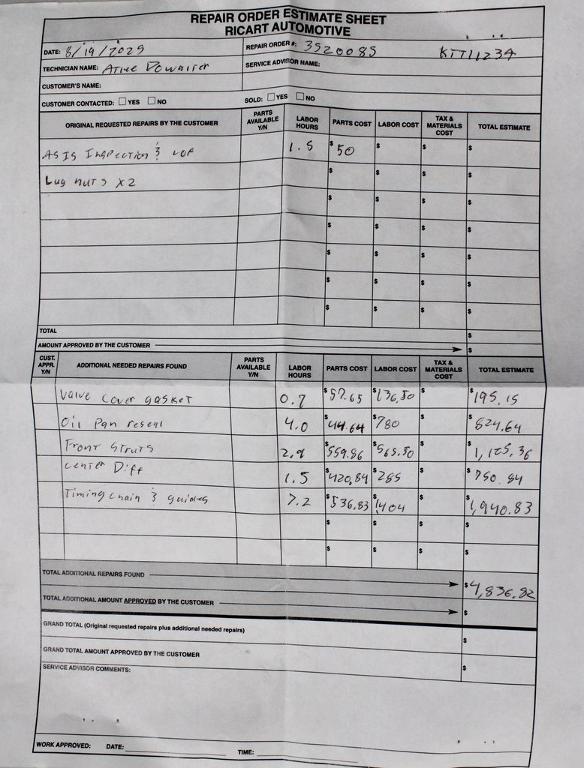 REPAIR ORDER ESTIMATE SHEET
RICART AUTOMOTIVE
DATE: 8/19/2025 REPAIR ORDER #: 3520085 KTT11234
TECHNICIAN NAME: SERVICE ADVISOR NAME:
CUSTOMER'S NAME:
CUSTOMER CONTACTED: YES NO SOLD: YES NO
ORIGINAL REQUESTED REPAIRS BY THE CUSTOMER PARTS AVAILABLE Y/N LABOR HOURS PARTS COST LABOR COST TAX & MATERIALS COST TOTAL ESTIMATE
AS IS Inspection & LOF 1.5 $50 $ $ $
Lug nuts x2 $ $ $ $
$ $ $ $
$ $ $ $
$ $ $ $
$ $ $ $
$ $ $ $
TOTAL $
AMOUNT APPROVED BY THE CUSTOMER $
CUST. APPR. Y/N ADDITIONAL NEEDED REPAIRS FOUND PARTS AVAILABLE Y/N LABOR HOURS PARTS COST LABOR COST TAX & MATERIALS COST TOTAL ESTIMATE
Valve cover gasket 0.7 $57.65 $136.50 $ $195.15
Oil Pan reseal 4.0 $44.64 $780 $ $824.64
Front Struts 2.9 $559.86 $565.50 $ $1,125.36
Center Diff 1.5 $420.84 $285 $ $750.84
Timing chain & guides 7.2 $536.83 $1404 $ $1,940.83
$ $ $ $
TOTAL ADDITIONAL REPAIRS FOUND $4,836.82
TOTAL ADDITIONAL AMOUNT APPROVED BY THE CUSTOMER $
GRAND TOTAL (Original requested repairs plus additional needed repairs) $
GRAND TOTAL AMOUNT APPROVED BY THE CUSTOMER $
SERVICE ADVISOR COMMENTS:
WORK APPROVED: DATE: TIME: